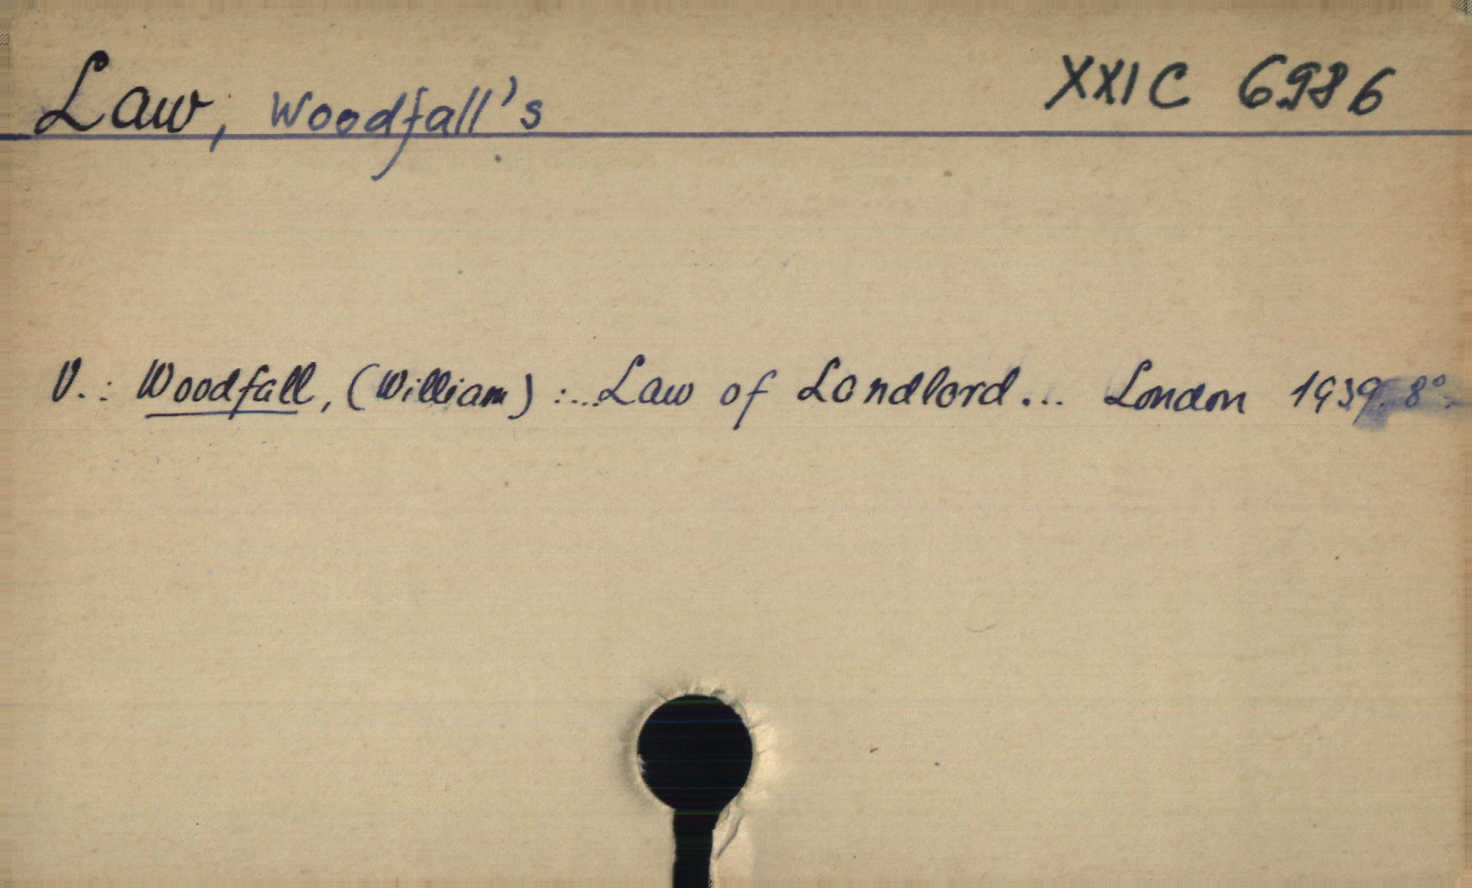 Law, Woodfall's XXI C 6986
V.: Woodfall, (William) :...Law of Landlord... London 1939. 8°.